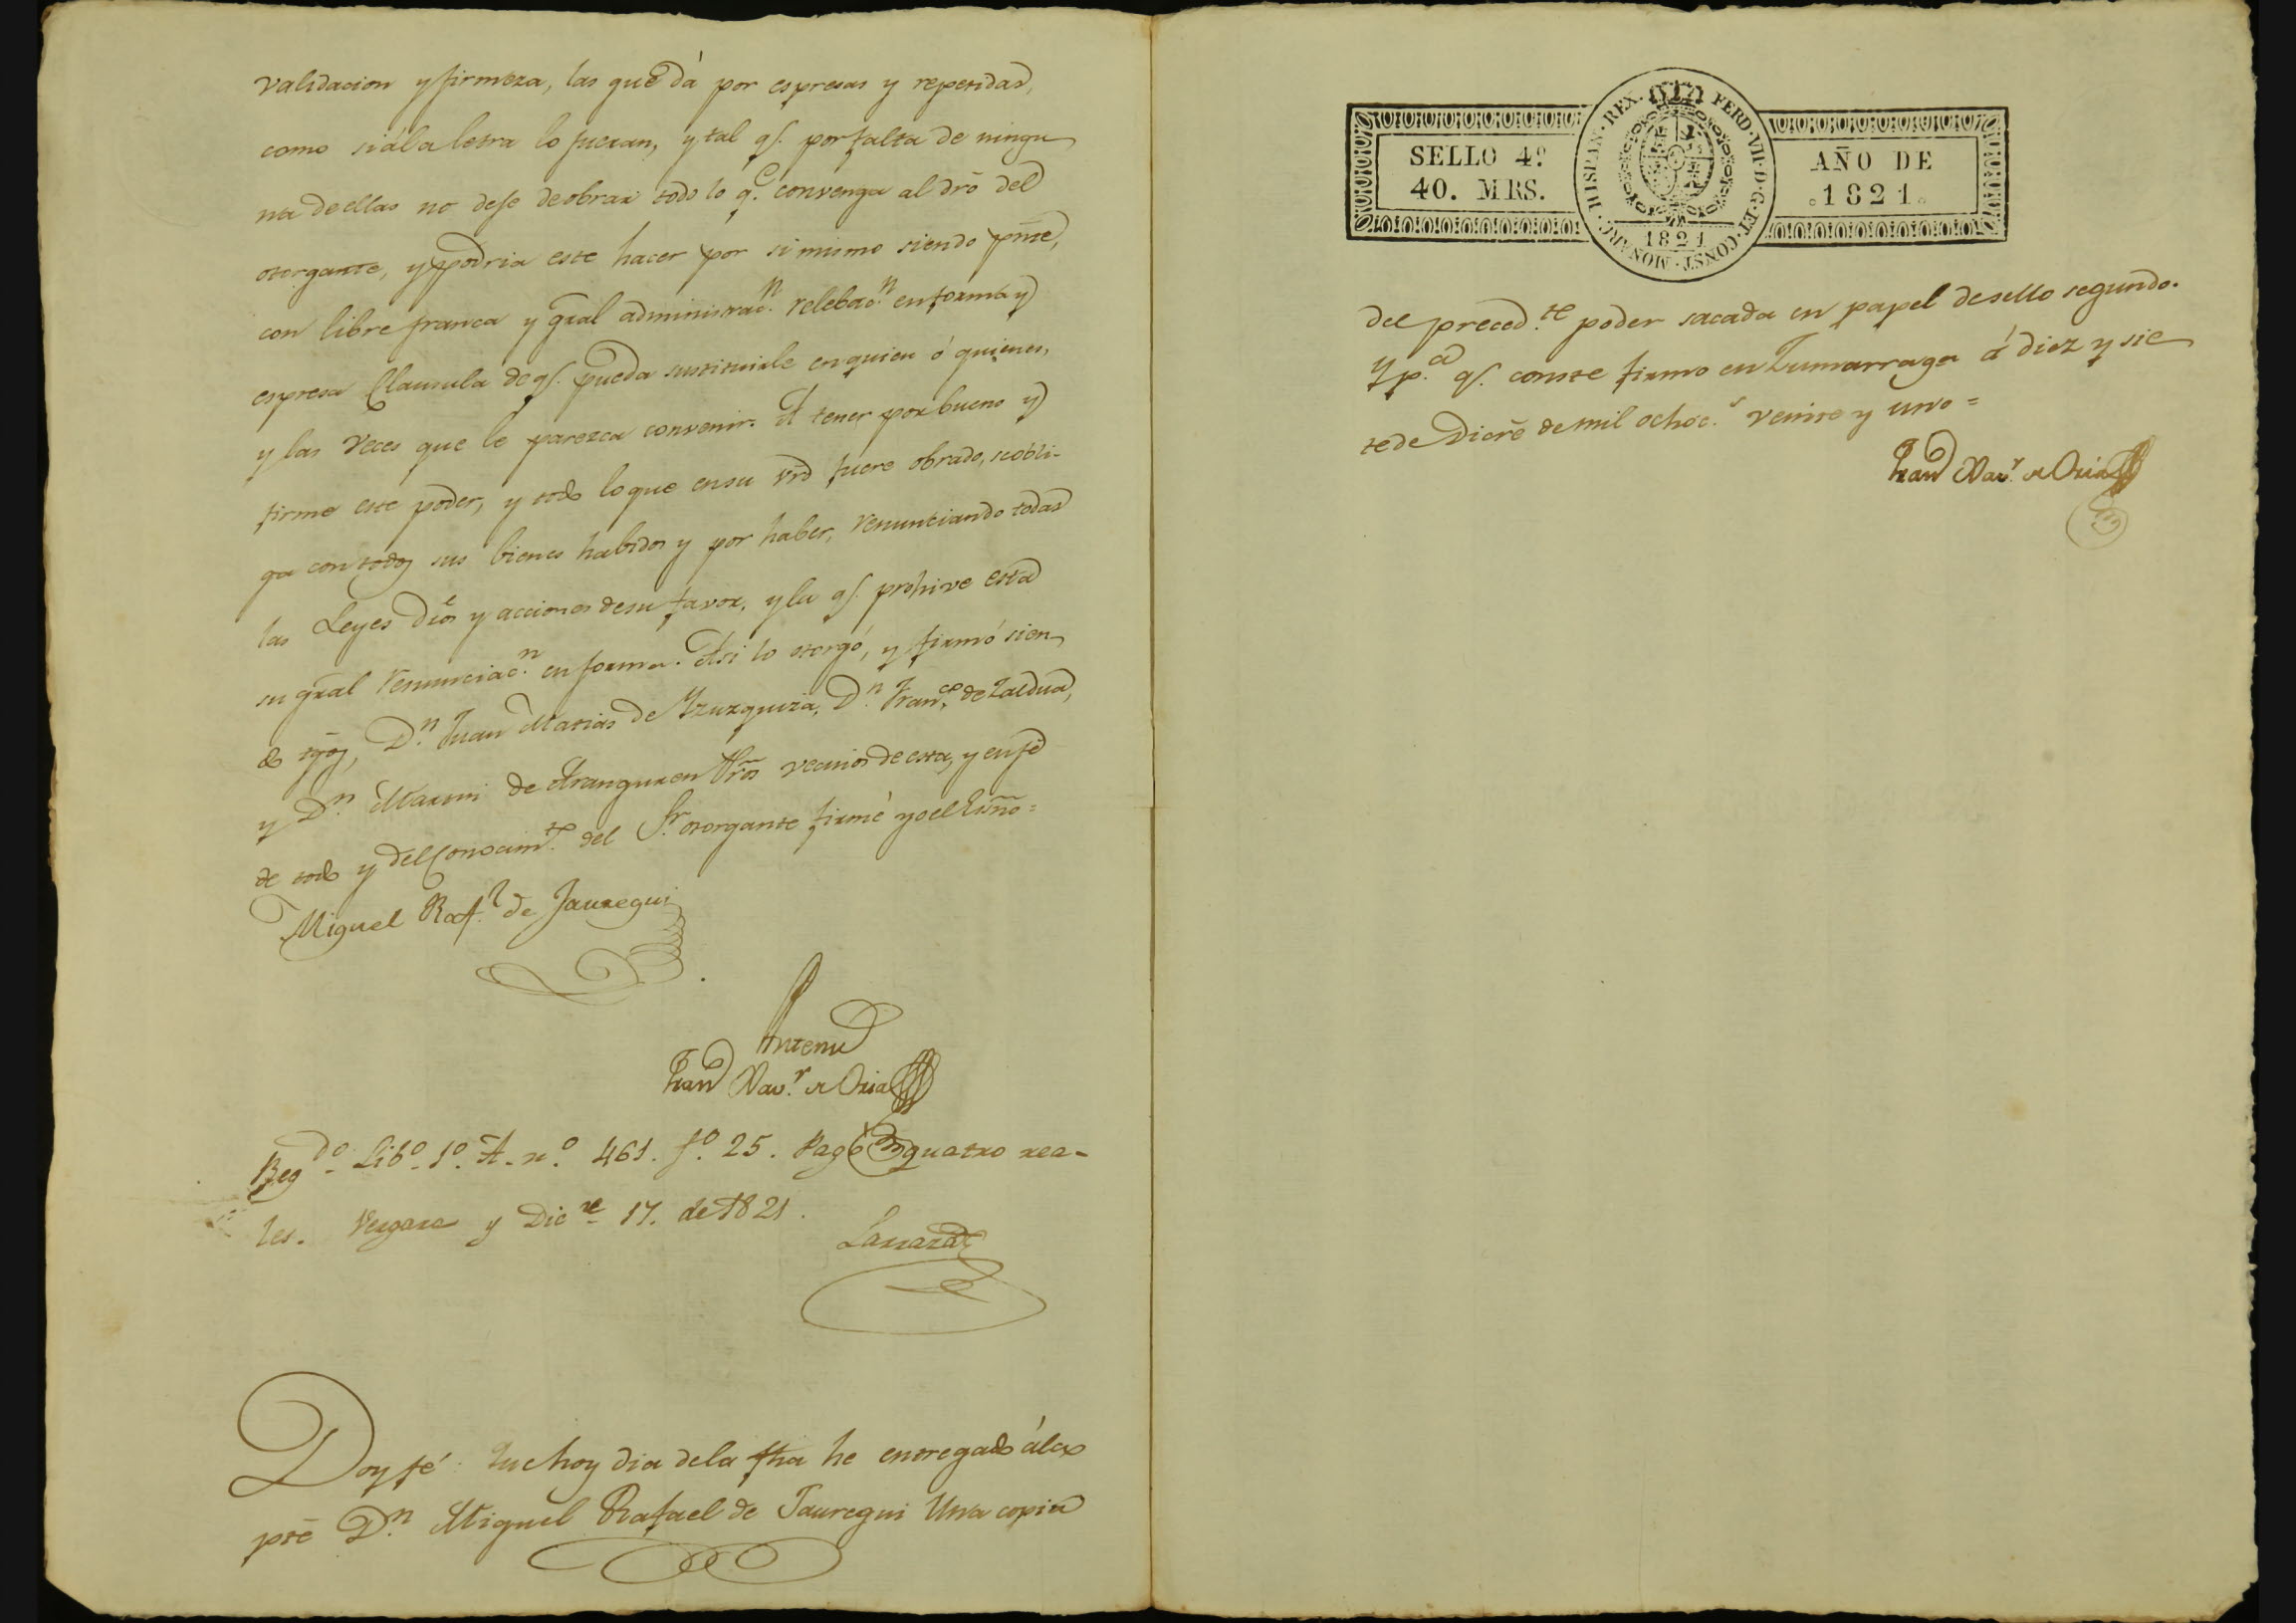 validacion y firmeza, las que dá por espresas y repetidas,
como si á la letra lo fueran, y tal qe. por falta de ningu
na de ellas no deje de obrar todo lo qe. convenga al dro̅ del
otorgante, y podria este hacer por si mismo siendo pnte,
con libre franca y gral administrac.n relebac.n en forma y
espresa Clausula de qe. pueda sustituirle en quien ó quienes,
y las veces que le parezca convenir. A tener por bueno y
firme este poder, y todo lo que en su vrd fuere obrado, se obli-
ga con todos sus bienes habidos y por haber, renunciando todas
las Leyes dros y acciones de su favor, y la qe. prohive esta
su gral renunciac.n en forma. Asi lo otorgó, y firmó sien
do tgos, D.n Juan Matias de Yzuzquiza, D.n Fran.co de Zaldua,
y D.n Martin de Aranguren vecinos de esta, y en fé
de todo y del Conocim.to del S.r otorgante firmé yo el Esno =
Miguel Raf.l de Jauregui
Antemi
Fran Xav.r de Oria
Regdo. Libo. 1o. A. n.o 461. fo. 25. Pagó quatro rea-
les. Vergara y Dicre 17. de 1821.
Doy fé: Que hoy dia de la fha he entregado á la
pte D.n Miguel Rafael de Jauregui Una copia
SELLO 4º
40. MRS.
HISPAN. REX. FERD. VII. D. G. ET. CONST. MONARC.
1821
AÑO DE
1821
del preced.te poder sacada en papel de sello segundo.
Y p.a qe. conste firmo en Zumarraga á diez y sie
te de Dicre de mil ochoc.s veinte y uno =
Fran Xav.r de Oria